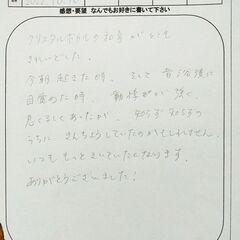 感想・要望 なんでもお好きに書いて下さい
クリスタルボウルの和音がとても
きれいでした。
今朝起きた時、そして音浴後に
目覚めた時、動悸がが強く、
息ぐるしくあったが、知らず知らずの
うちに きんちょうしていたのかもしれません。
いつも もっと きいていたくなります。
ありがとうございました!